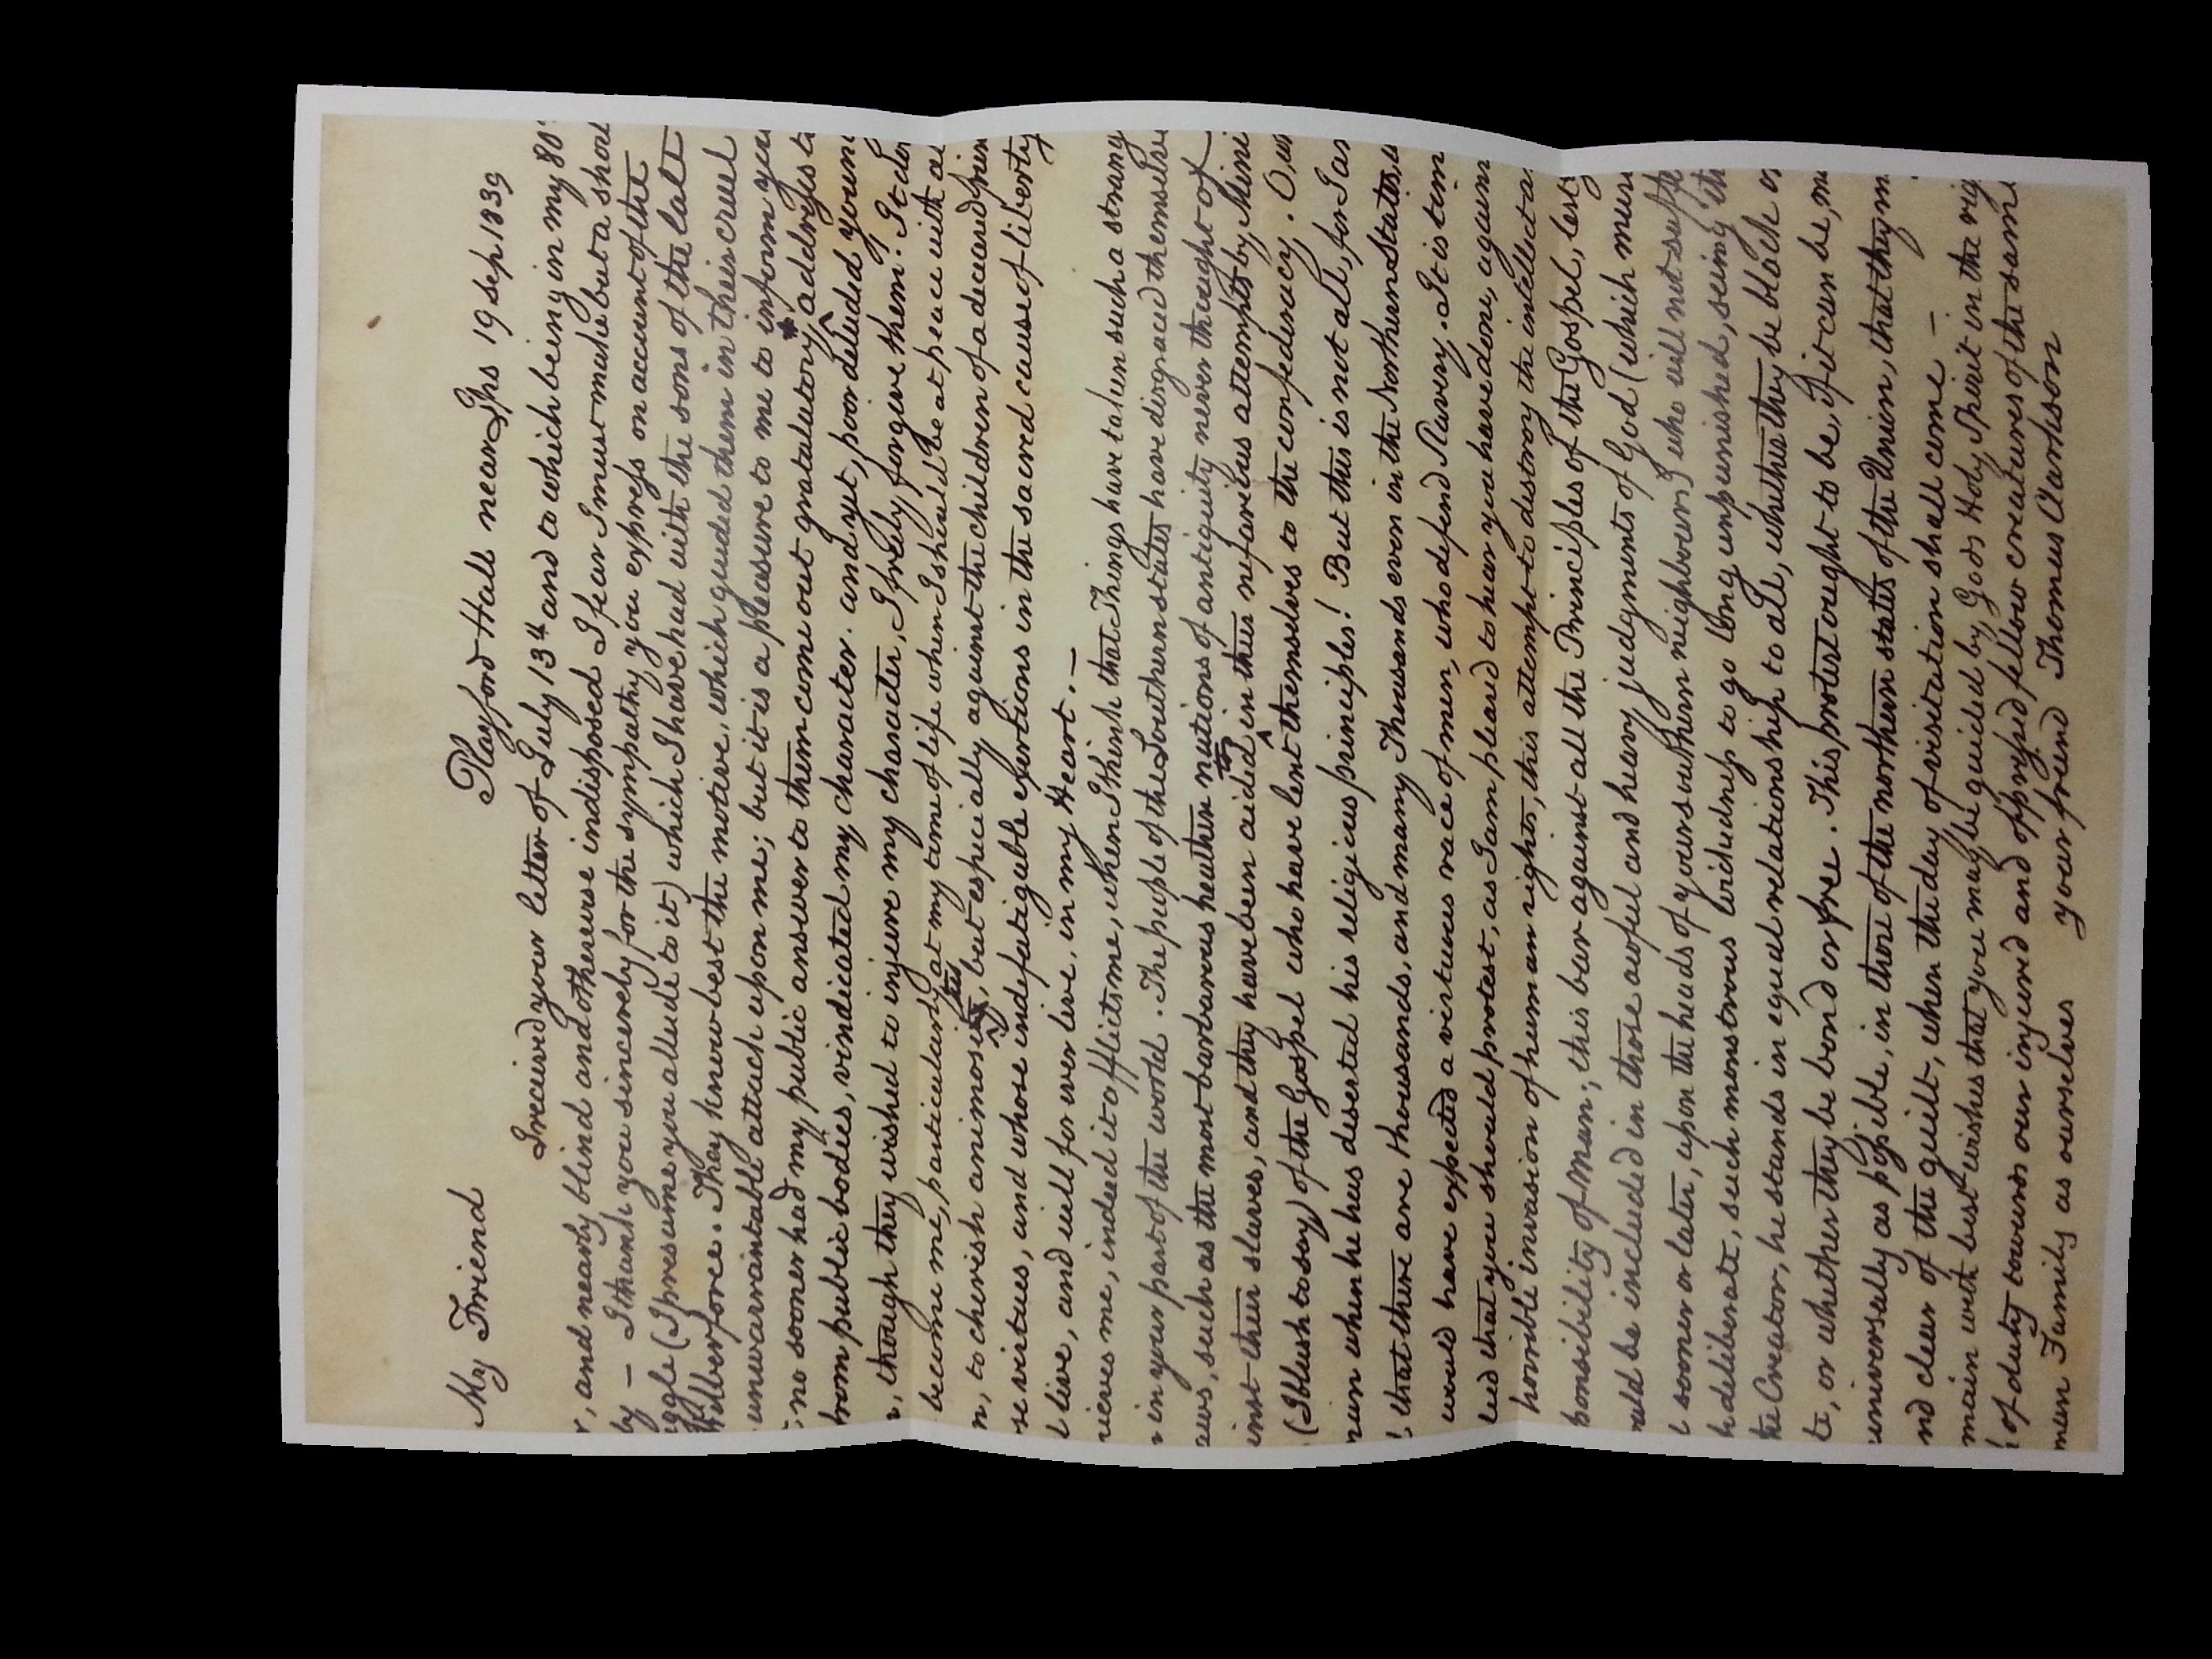 Playford Hall near Ips 19 Sep 1839
My Friend
I received your letter of July 13th and to which being in my 80
r, and nearly blind and otherwise indisposed I fear I must make but a short
ly — I thank you sincerely for the sympathy you express on account of the
ggle (I presume you allude to it) which I have had with the sons of the late
Wilberforce. They knew best the motive, which guided them in their cruel
unwarrantable attack upon me; but it is a pleasure to me to inform you
no sooner had my public answer to them come out gratulatory addresses
from public bodies, vindicated my character. and yet, poor deluded young
, though they wished to injure my character, I freely forgive them! It
become me, particularly at my time of life when I should be at peace with
n, to cherish animosity, but especially against the children of a deceased
se virtues, and whose indefatigable exertions in the sacred cause of liberty
l live, and will for ever live, in my Heart. —
rieves me, indeed it afflicts me, when I think that Things have taken such a strang
in your part of the world. The people of the Southern states have disgraced themselve
aws, such as the most barbarous heathen nations of antiquity never thought of
inst their slaves, and they have been aided in their nefarious attempts by Mini
(I blush to say) of the Gospel who have lent themselves to the confederacy. Our
run when he has deserted his religious principles! But this is not all, for I
that there are thousands, and many Thousands even in the Northern States,
would have expected a virtuous race of men, who defend Slavery. It is tim
eed that you should protest, as I am pleased to hear you have done, again
horrible invasion of human rights, this attempt to destroy the intellectua
ponsibility of man; this bar against all the Principles of the Gospel, lest
uld be included in those awful and heavy judgments of God (which must
l sooner or later, upon the heads of your southern neighbours) who will not suffer
h deliberate, such monstrous wickedness to go long unpunished, seeing th
the Creator, he stands in equal relationship to all, whether they be black or
te, or whether they be bond or free. This protest ought to be, if it can be, m
universally as possible, in those of the northern states of the Union, that they m
nd clear of the guilt, when the day of visitation shall come —
main with best wishes that you may be guided by Gods Holy Spirit in the rig
of duty towards our injured and oppressed fellow creatures of the same
man Family as ourselves your friend Thomas Clarkson